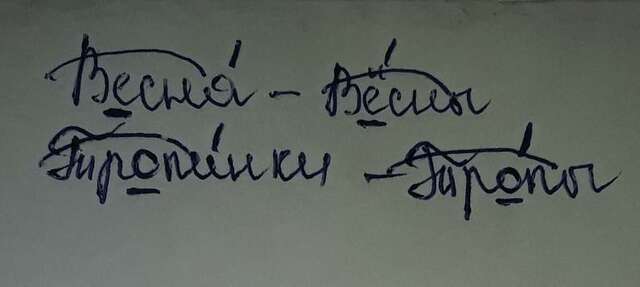 Весна́ - Вёсны
Тропи́нки - Тро́пы